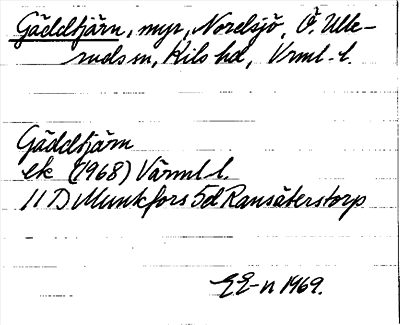 Gäddtjärn, myr, Nordsjö, Ö. Ulle-
ruds sn, Kils hd, Vrml. l.
Gäddtjärn
ek (1968) Värml l.
11 D Munkfors 5d Ransäterstorp
EE-n 1969.